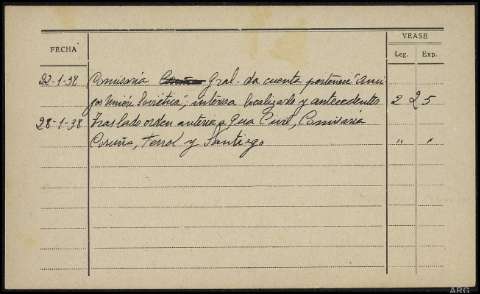 VEASE
FECHA Leg. Exp.
22-1-38 Comisaría Gral. da cuenta pertenece "Amigos
Unión Soviética", interesa localizarle y antecedentes 2 25
28-1-38 Traslado orden anterior a Gua Civil, Comisaría
Coruña, Ferrol y Santiago " "
ARG